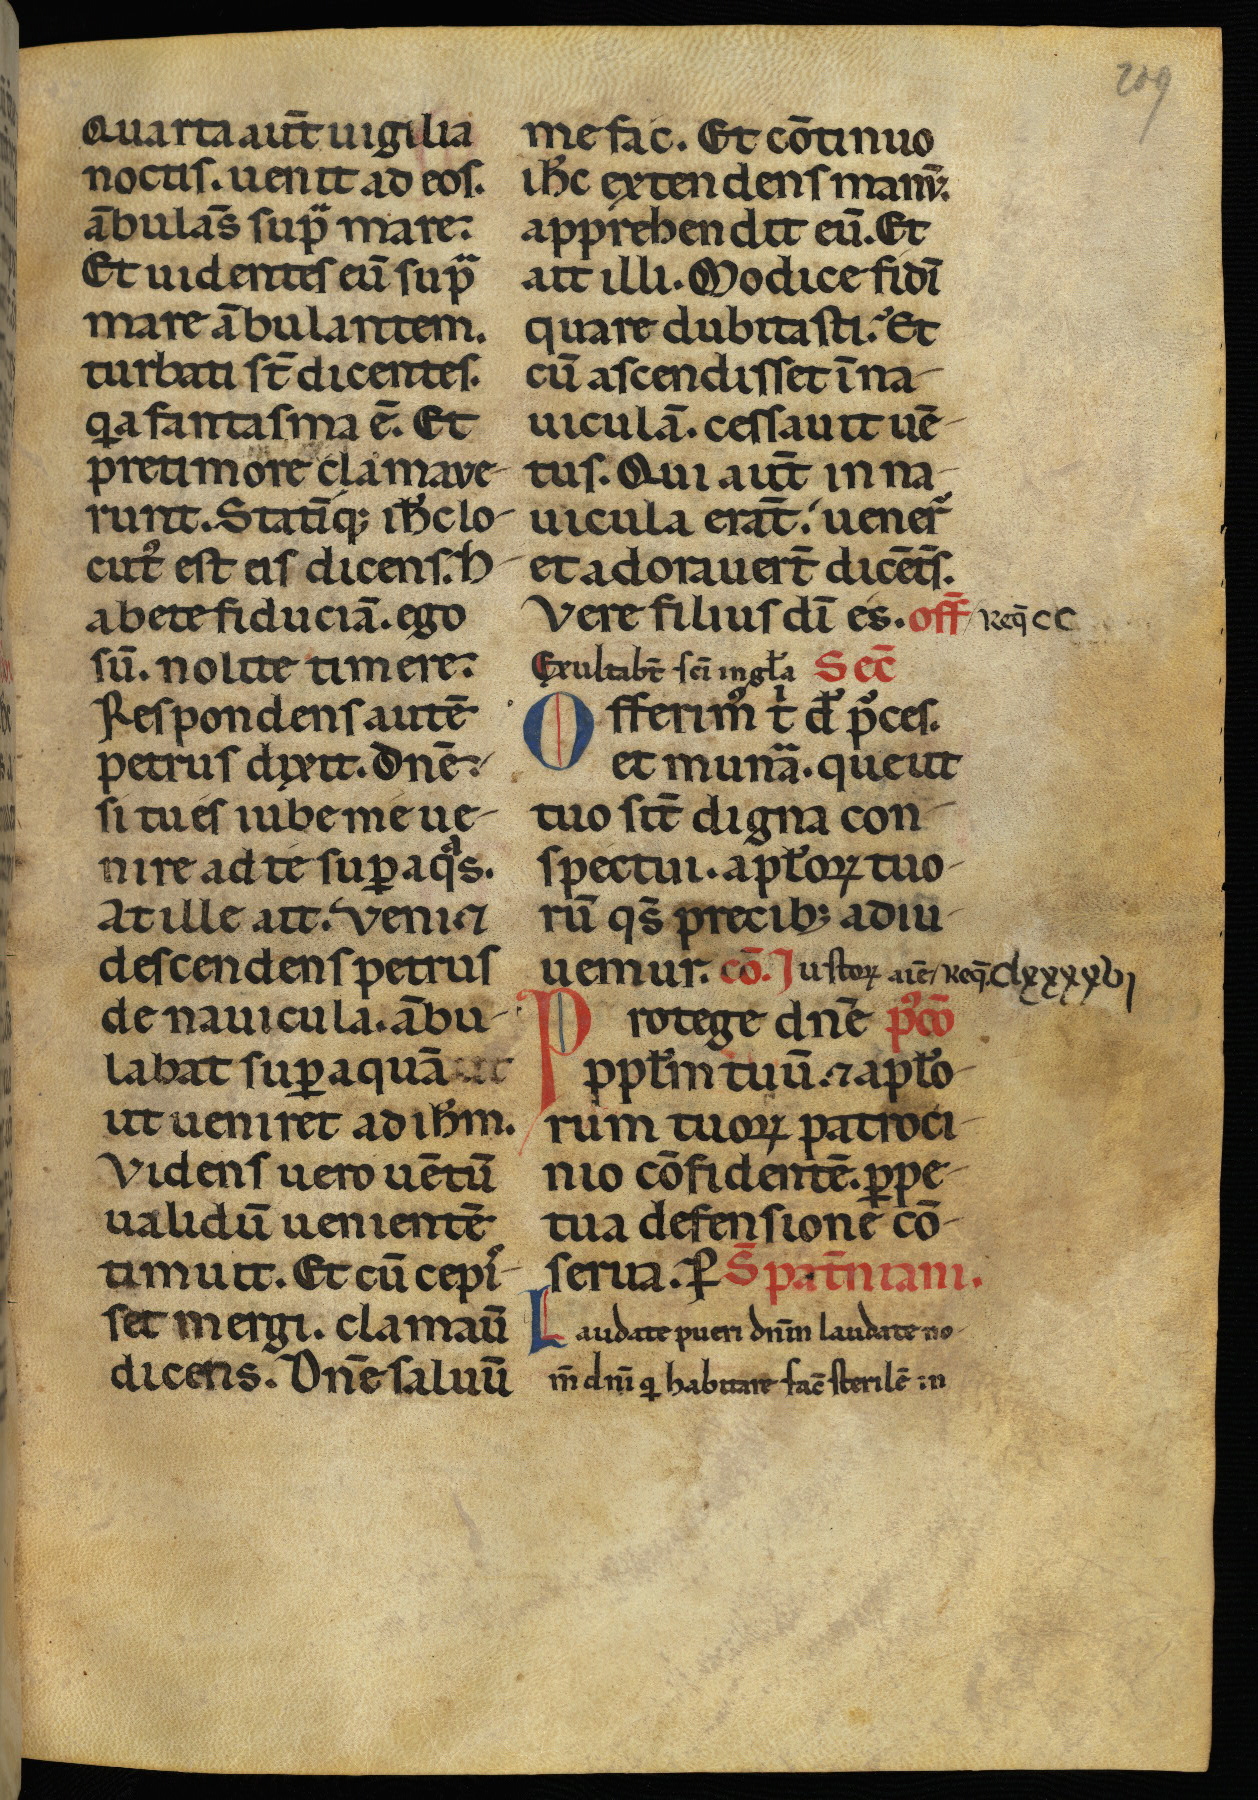 209
Quarta aut̄ uigilia
noctis. uenit ad eos.
ābulās sup̄ mare.
Et uidentes eū sup̄
mare ābulantem.
turbati st̄ dicentes.
qa fantasma ē. Et
pretimore clamaue-
runt. Statīq; ih̄c lo-
cut᾽ est eis dicens. h-
abete fiduciā. ego
sū. nolite timere.
Respondens autē
petrus dixit. Dn̄e
si tu es iube me ue-
nire ad te suꝑ aqᵃs.
At ille ait. Veni ⁊
descendens petrus
de nauicula. ābu-
labat suꝑ aquā
ut ueniret ad ih̄m.
Videns uero uētū
ualidū uenientē
timuit. Et cū cepis-
set mergi. clamau̅
dicens. Dn̄e saluū
me fac. Et cōtinuo
ih̄c extendens manū.
apprehendit eū. Et
ait illi. Modice fidī
quare dubitasti. Et
cū ascendisset ī na-
uiculā. cessauit uē-
tus. Qui aut̄ in na-
uicula erāt. uener̄
et adorauert̄ dicēts̄.
Vere filius dī es. off̄ Req̄ CC
Exultabt̄ sc̄i in gl̄a Sec̄
Offerim᾽ tⁱ d̄ p̄ces.
et munᵃa. que ut
tuo sīt digna con-
spectui. apl̄oꝝ tuo-
rū qs̄ precib; adiu-
uemur. cō. Iustoꝝ aīe Req̄. Clxxxxvi
Protege dn̄e p᾽cō
ppl̄m tuū. ⁊ apl̄o-
rum tuoꝝ patroci-
nio cōfidentē. ꝑpe-
tua defensione cō-
serua. P̄ S̄ pat̄niani.
Laudate pueri dn̄m laudate no-
m̄ dn̄i q̄ habitare fac̄ sterilē in